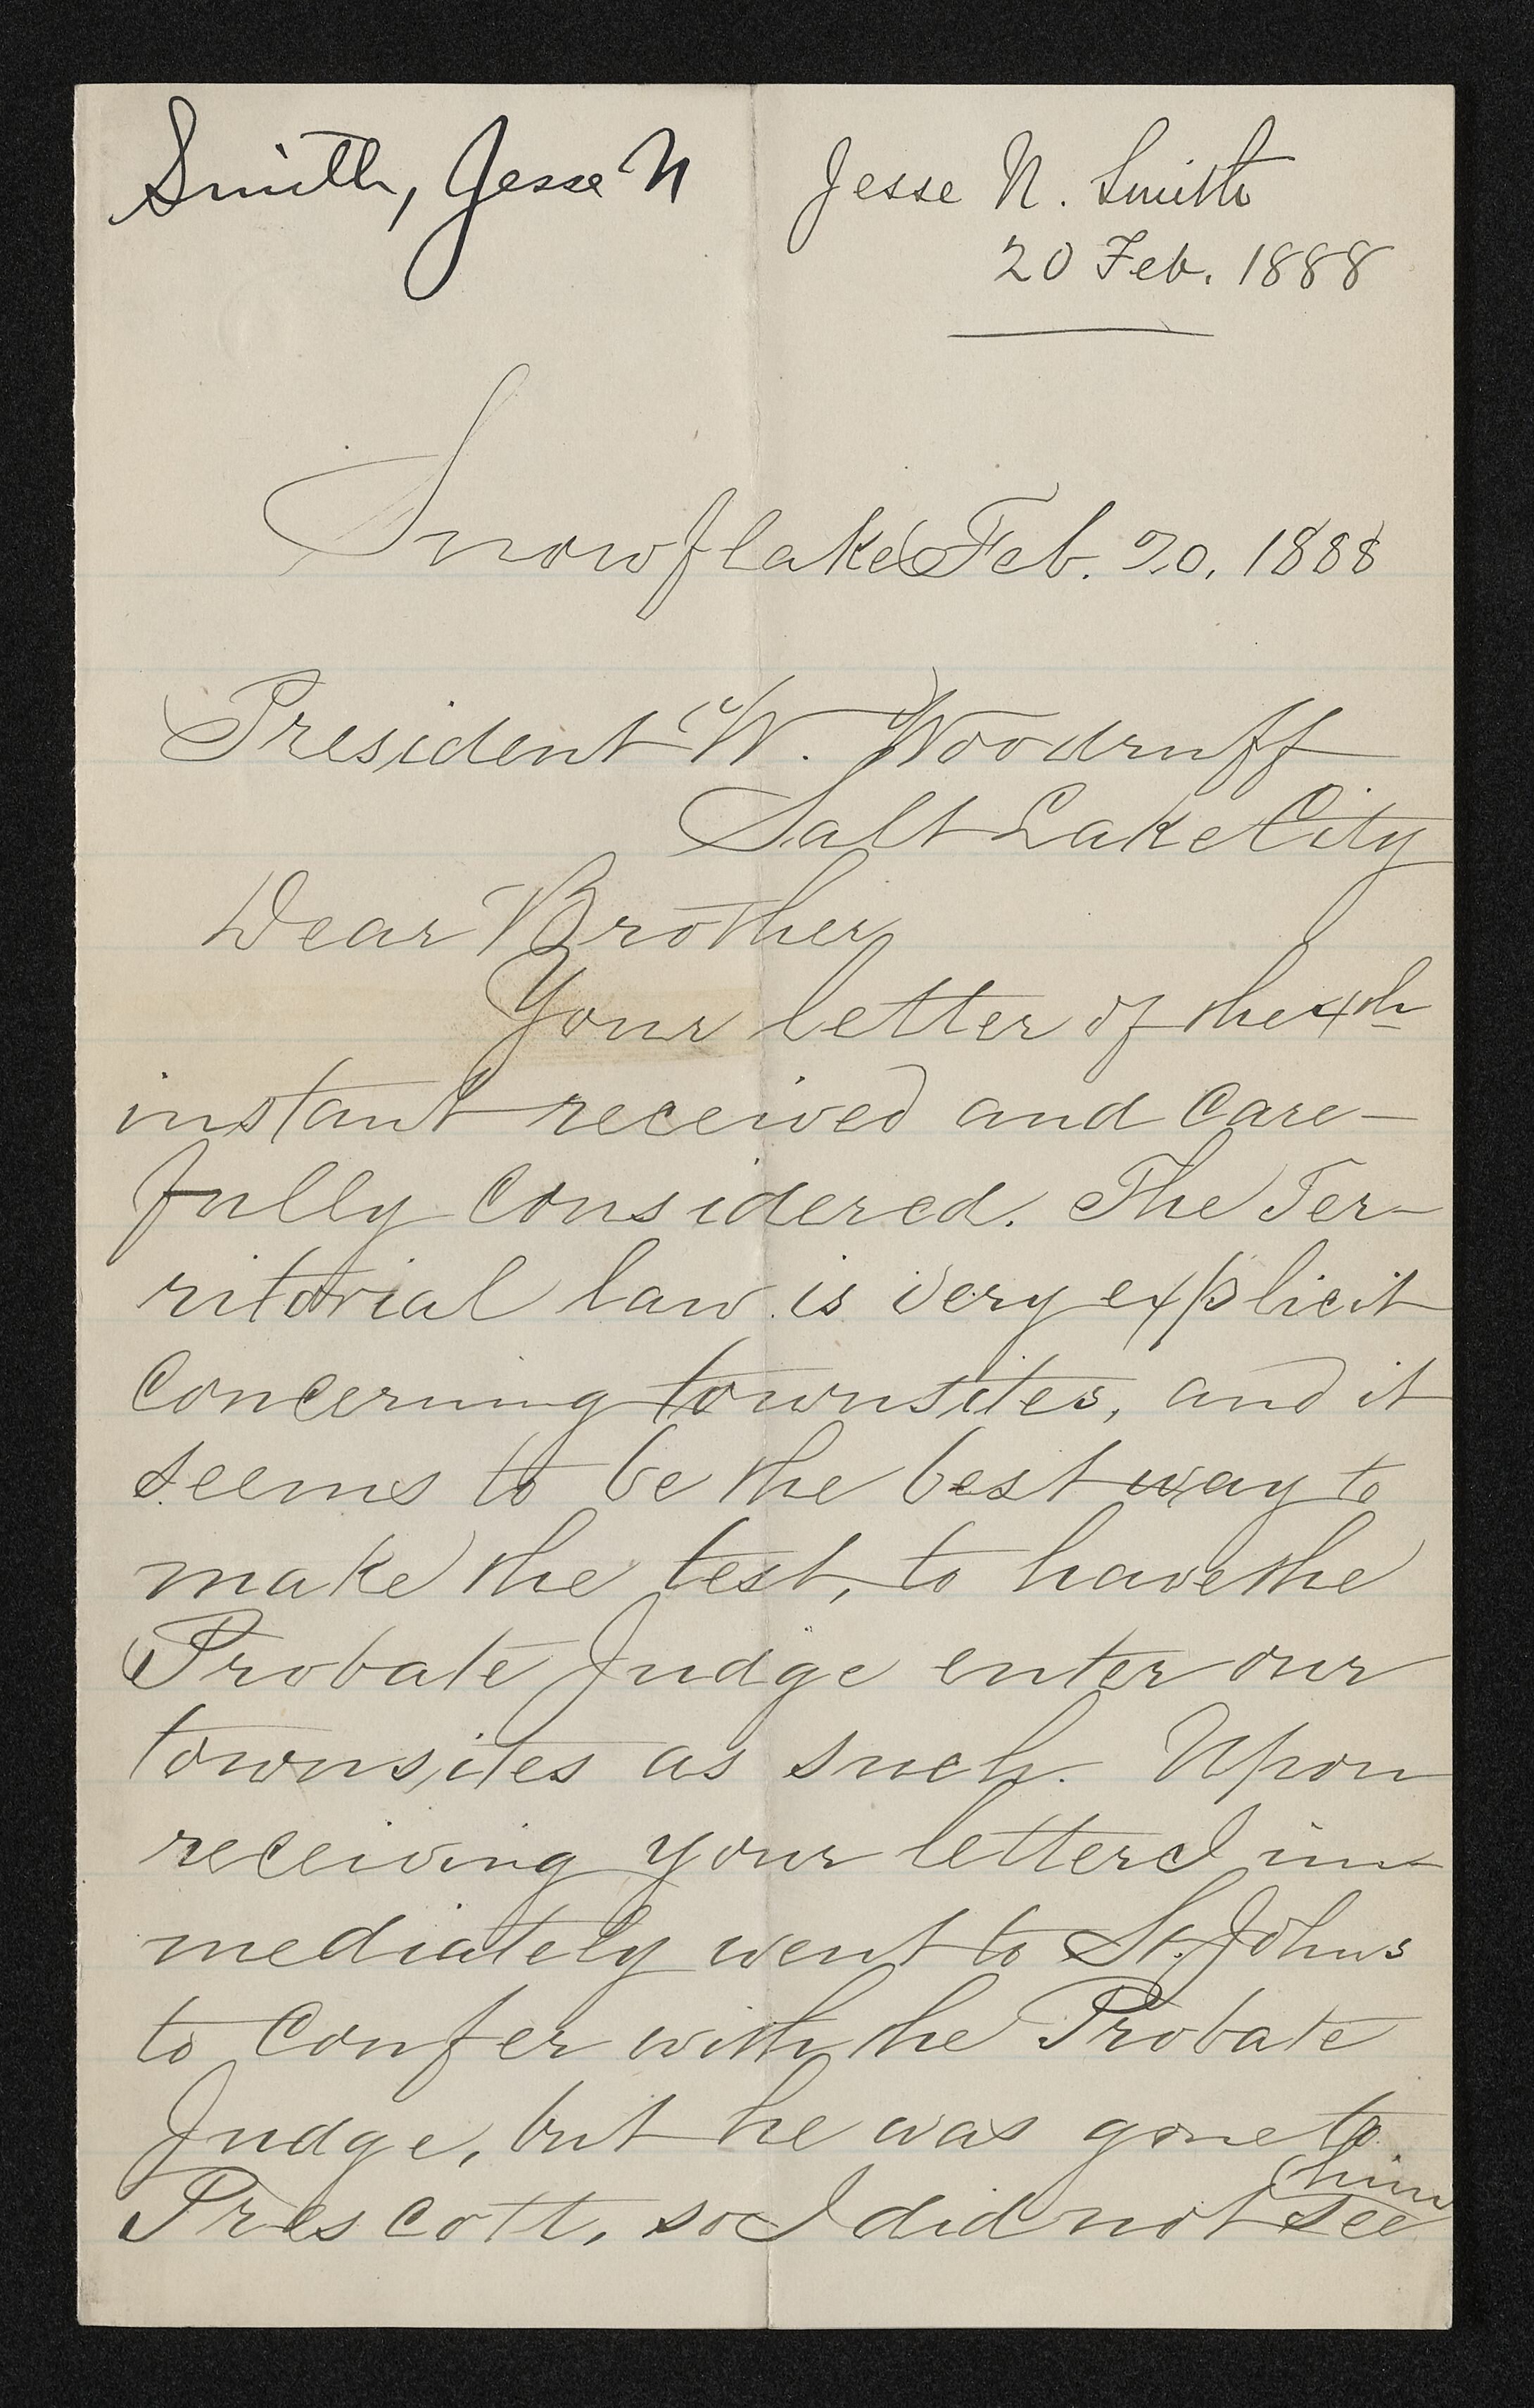 Smith, Jesse N
Jesse N. Smith
20 Feb. 1888
Snowflake Feb. 20, 1888
President W. Woodruff
Salt Lake City
Dear Brother
Your letter of the 4th
instant received and care-
fully considered. The Ter-
ritorial law is very explicit
concerning townsites, and it
seems to be the best way to
make the test, to have the
Probate Judge enter our
townsites as such. Upon
receiving your letter I im-
mediately went to St. Johns
to confer with the Probate
Judge, but he was gone to
Prescott, so I did not see him